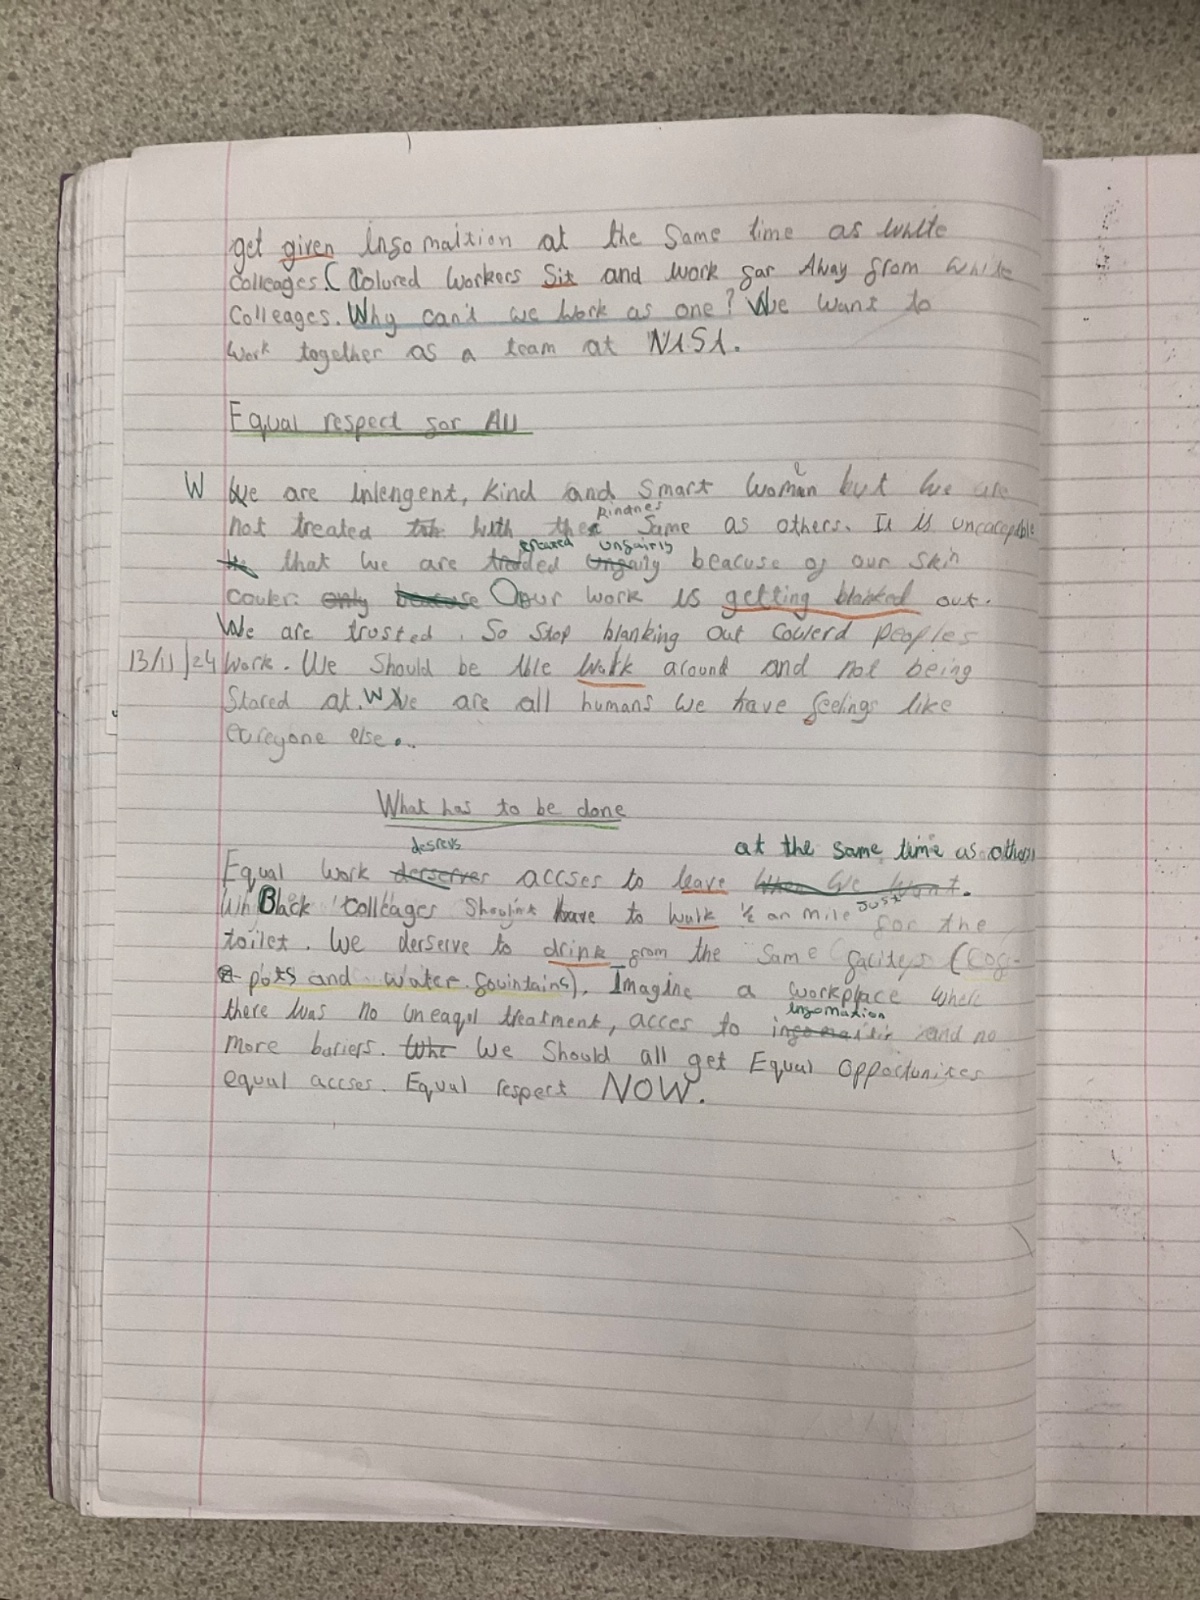 get given insomaition at the same time as white
colleages. Colured workers sit and work sar Away srom white
Colleages. Why can't we work as one? We want to
work together as a team at NASA.
Equal respect sor All
W We are inlengent, kind and smart woman but we are
kindnes
not treated with the same as others. It is uncaceptable
treated unsairly
that we are beacuse of our skin
couler. only because Our work is getting blanked out.
We are trusted. So stop blanking out coulerd peoples
13/11/24 work. We should be Able walk around and not being
stared at. We are all humans we have feelings like
everyone else...
What has to be done
desrevs at the same time as others
Equal work derserves accses to leave when we want.
Black Colleages Shouldnt have to walk ½ an mile just sor the
toilet. We derserve to drink srom the same sacileys (cos-
pots and water sountains). Imagine a workplace where
there was no uneaqul treatment, acces to insomation and no
more bariers. We should all get Equal opportunites
equal accses. Equal respect NOW.